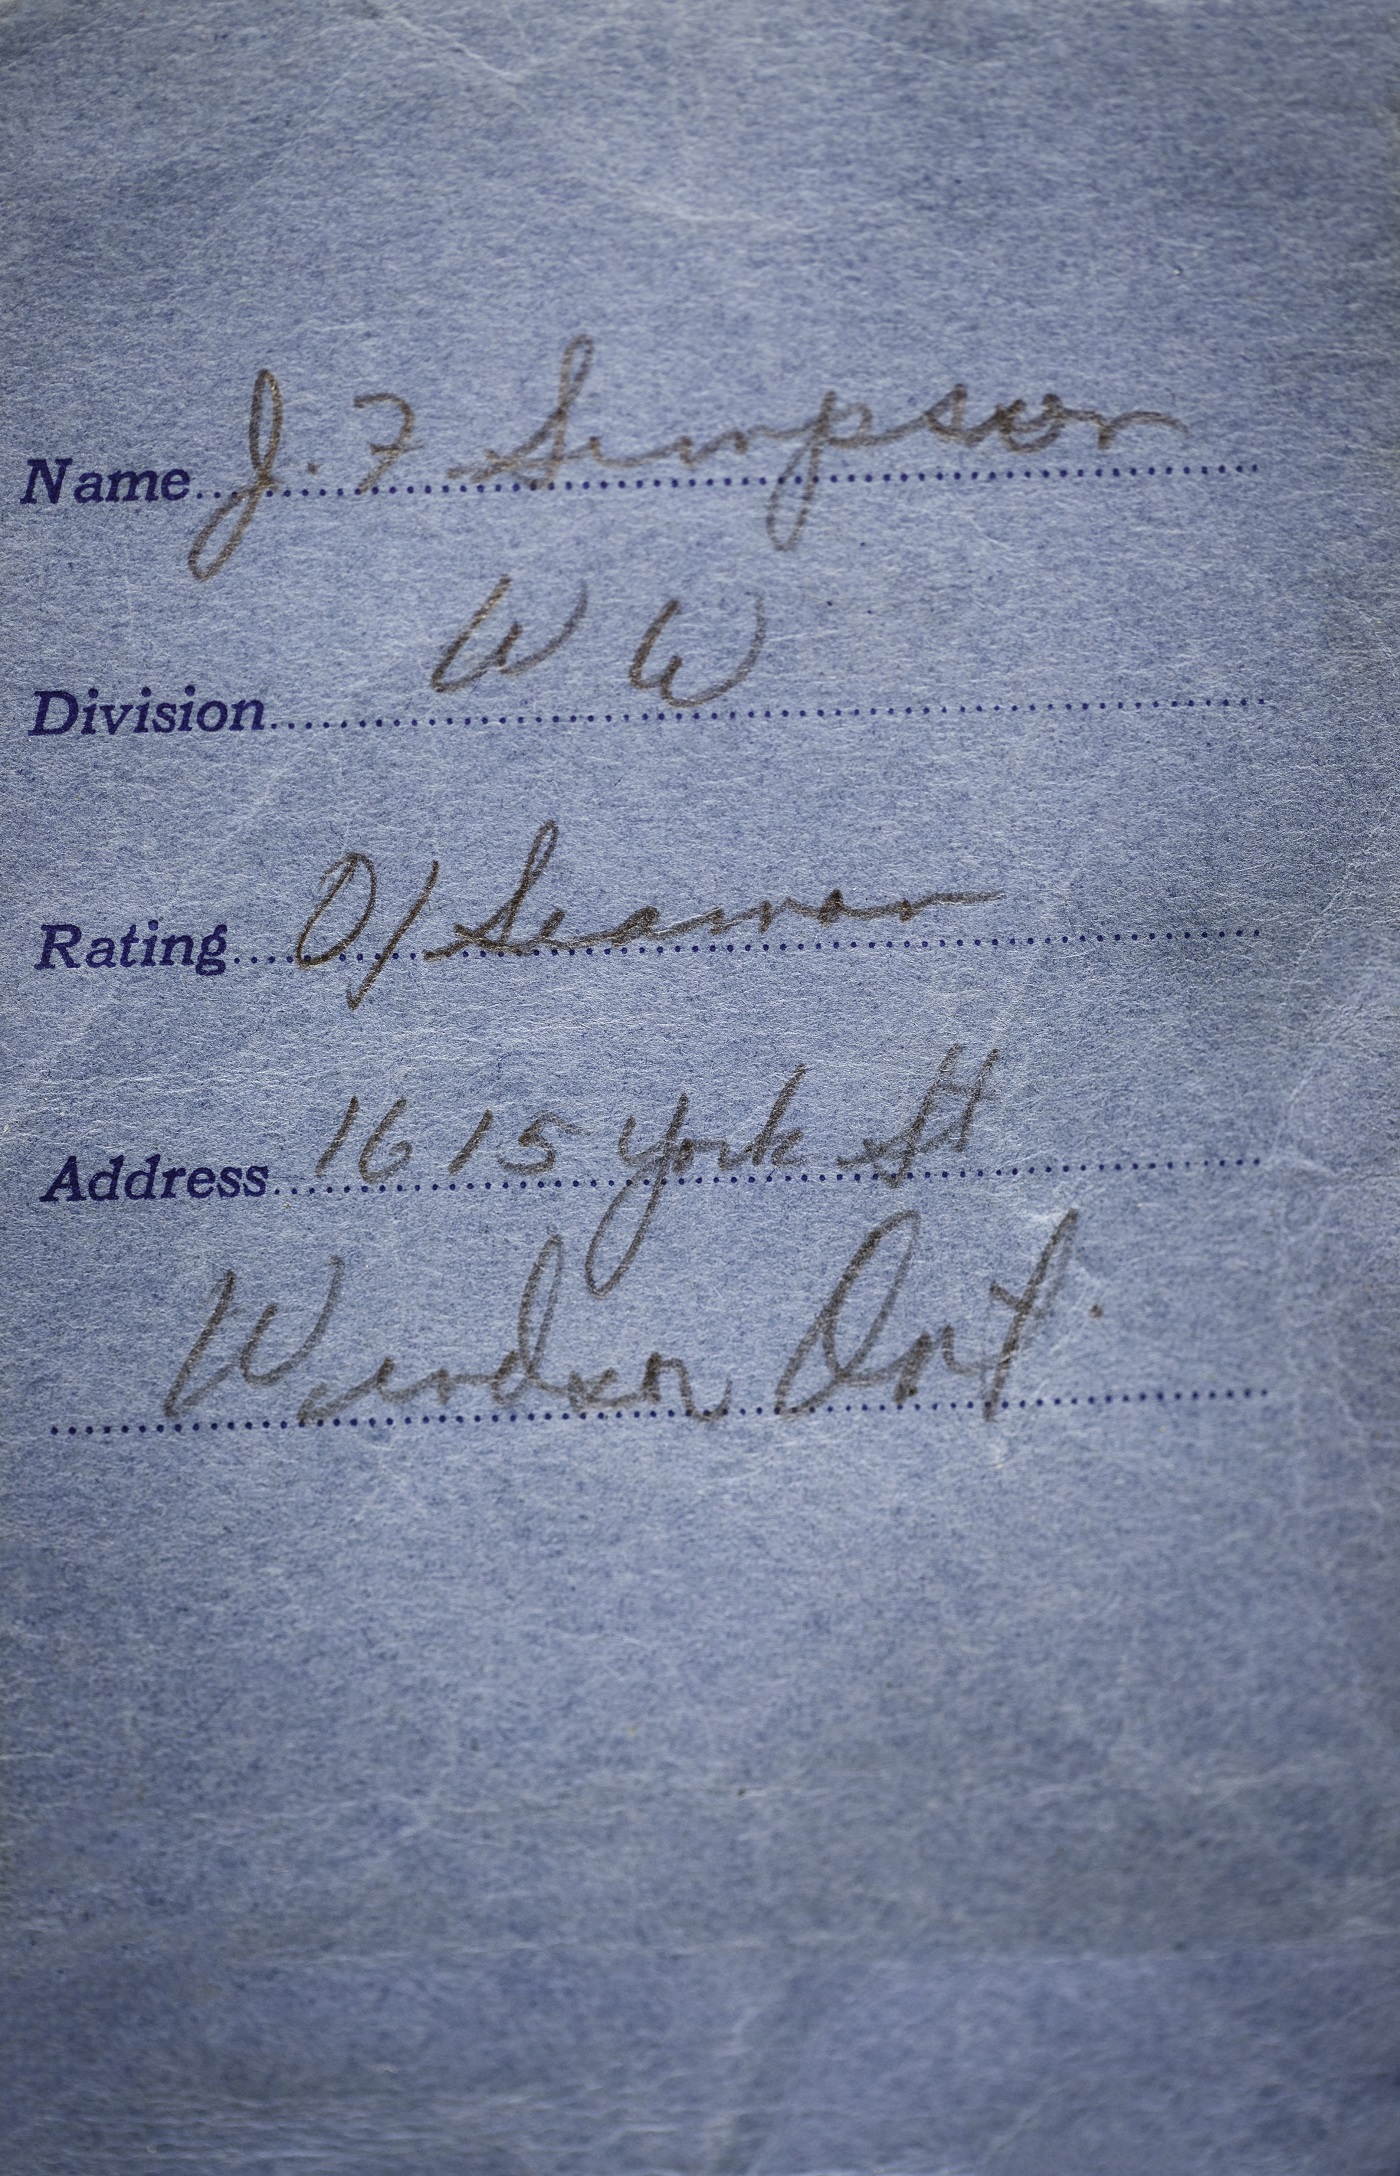 Name J. F. Simpson
Division W W
Rating O/Seaman
Address 1615 York St
Windsor Ont.